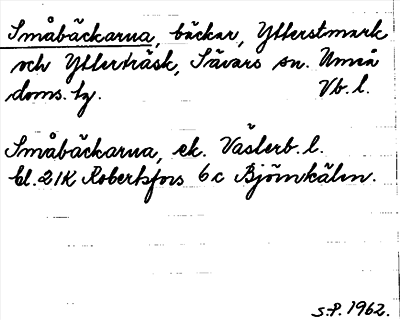 Småbäckarna, bäckar, Ytterstmark
och Ytterträsk, Sävars sn. Umeå
doms. tg. Vb. l.
Småbäckarna, ek. Västerb. l.
bl. 21K Robertsfors 6c Björnkälen.
S.P. 1962.